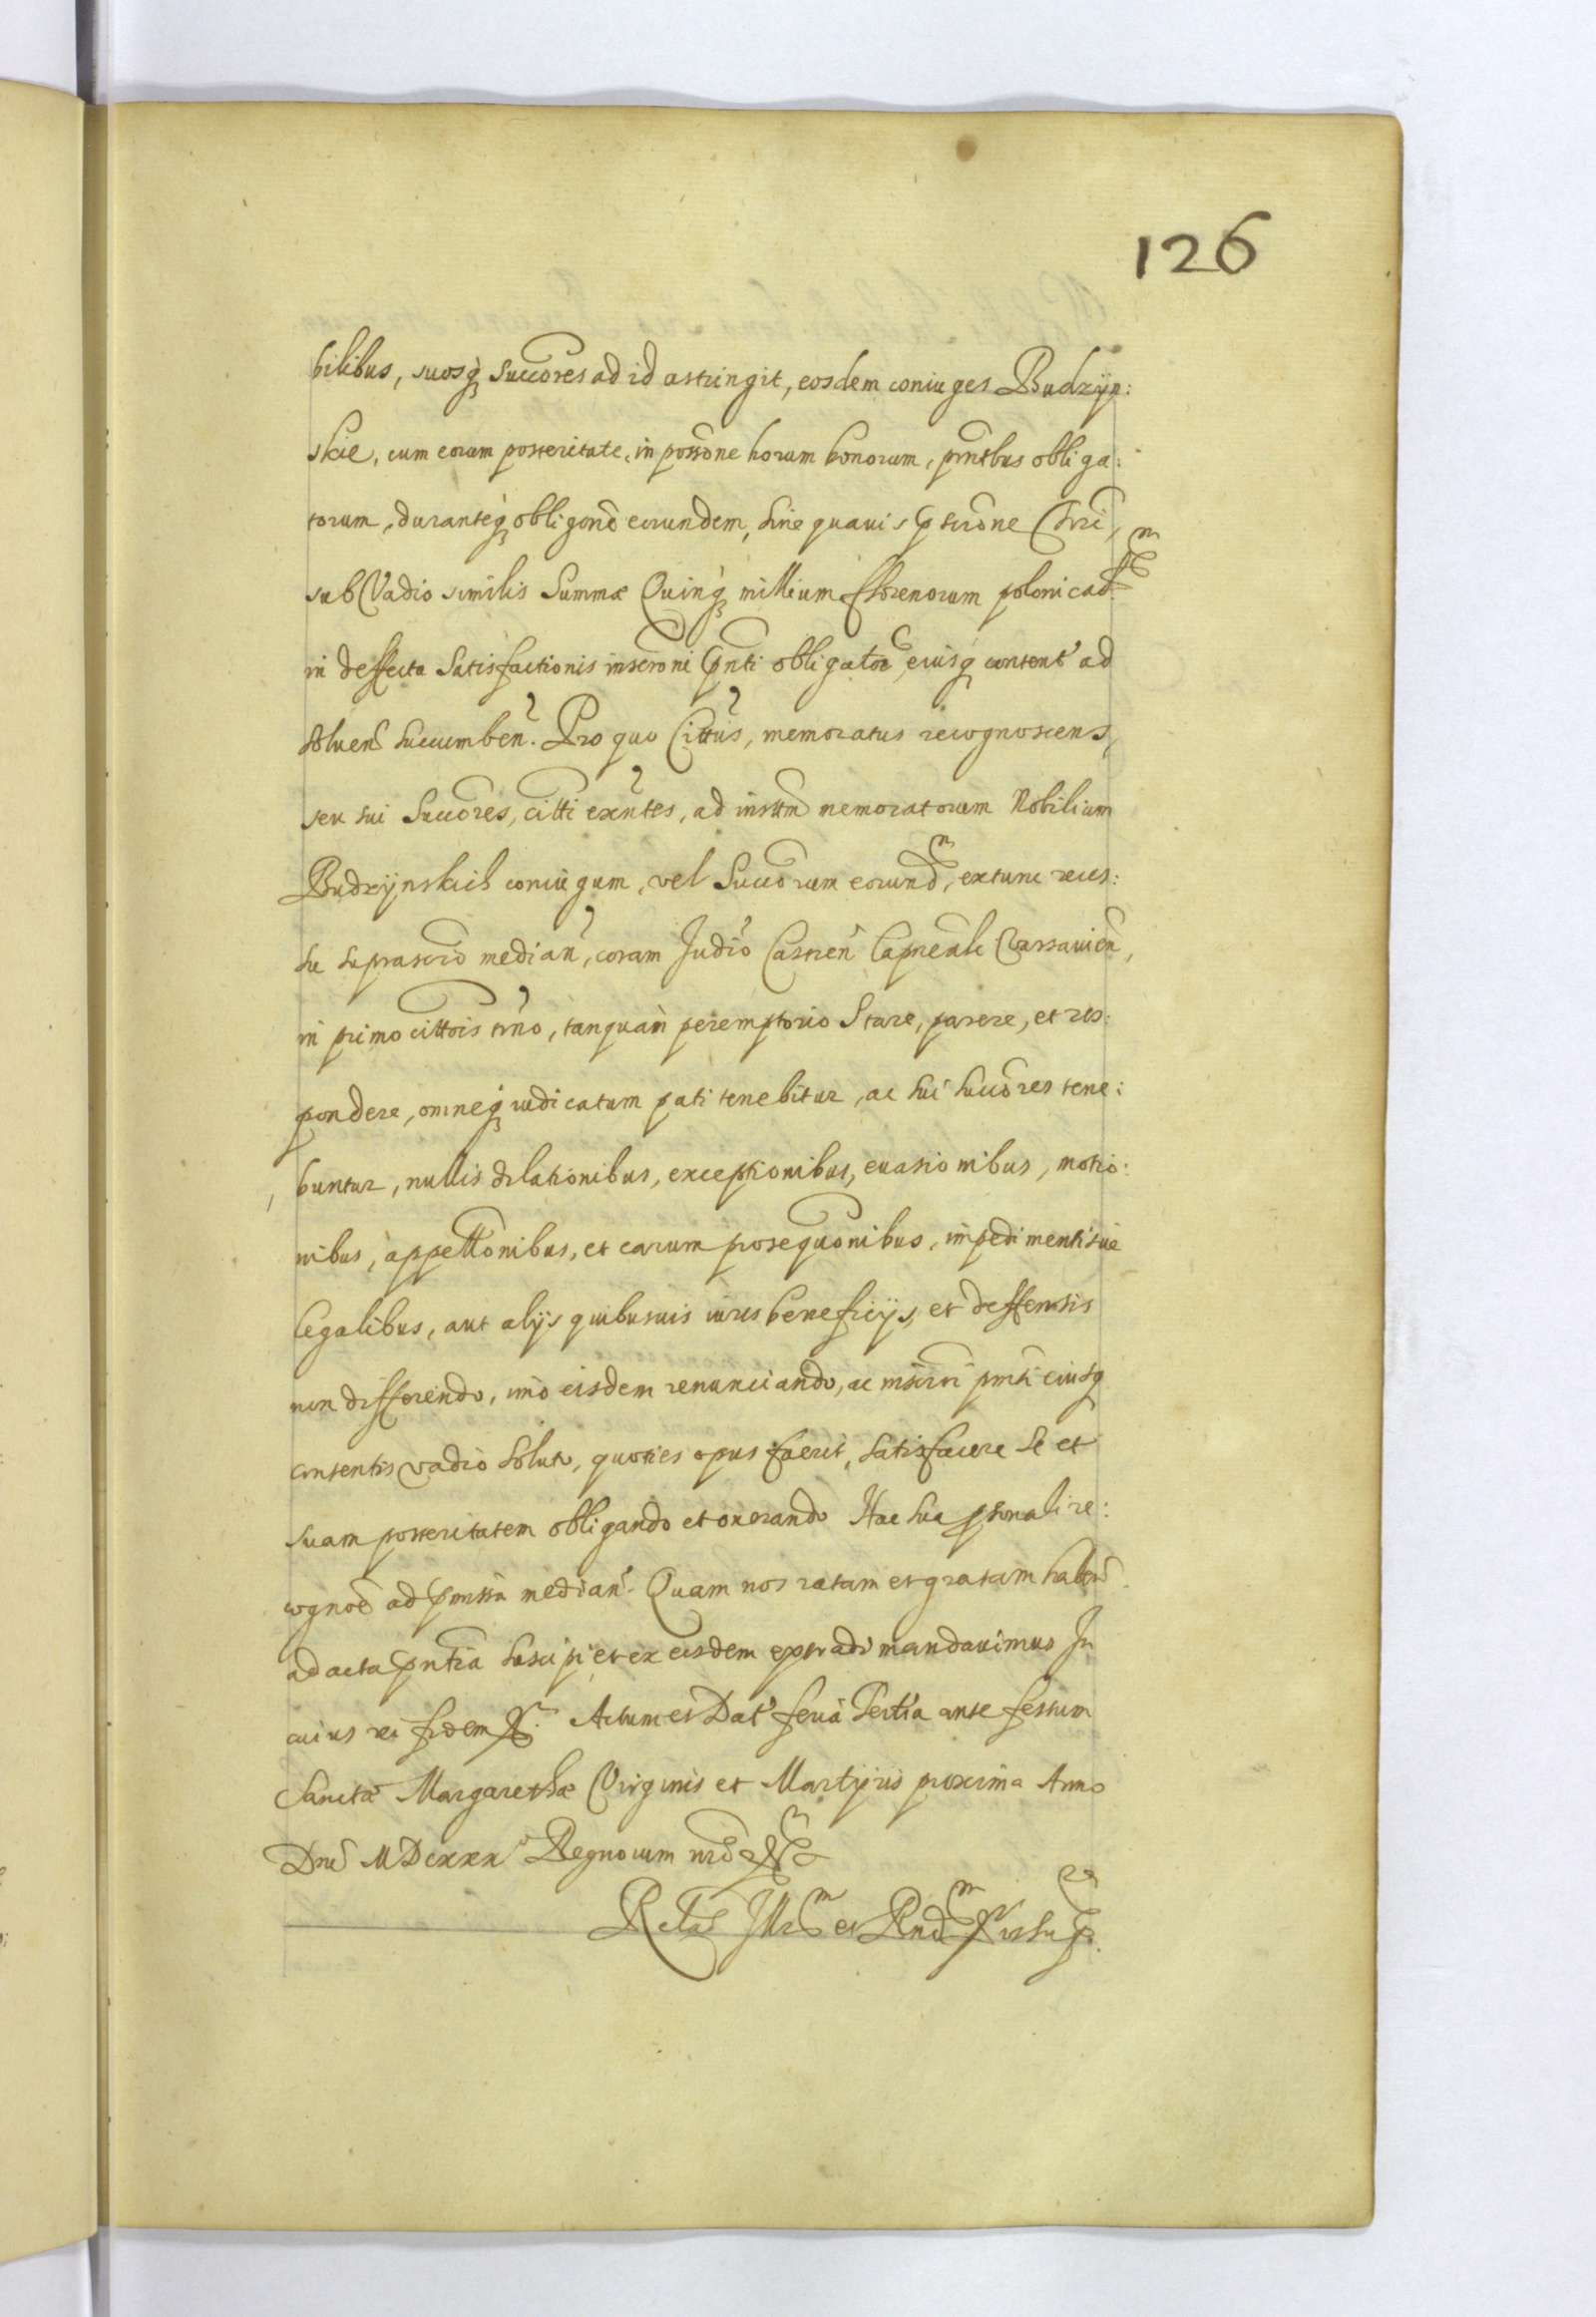 126
bilibus, suosq́ Succores ad id astringit, eosdem coniuges Budzÿn:
skie, cum eorum posteritate, in possone horum bonorum, pntibus obliga:
torum, duranteq́ obligone eorundem, sine quauis
sub Vadio similis Summæ Quinq́ millium fflorenorum polonical
in deffectu Satisfactionis inscroni pnti obligatoe eiusq́ content ad
soluen succumben. Pro quo Cittus, memoratus recognoscens,
seu sui Succores, citti exntes, ad insttm memoratorum Nobilium
Budzÿnskich coniugum, vel Succorum eorund, extunc reces:
su suprascro median, coram Judio Castren Capneali Varsauien,
in primo cittois tmno, tanquam peremptorio Stare, parere, et res:
pondere, omneq́ iudicatum pati tenebitur, ac sui succores tene:
buntur, nullis dilationibus, exceptionibus, euasionibus, motio:
nibus, appellonibus, et earum prosequonibus, impedimentisue
legalibus, aut alijs quibusuis iuris beneficijs, et deffensis
non differendo, imo eisdem renunciando, ac inscroni pnti eiusq́
contentis vadio soluto, quoties opus fuerit, satisfacere se et
suam posteritatem obligando et onerando Hac sua psonali re:
cognoe ad pmissa median. Quam nos ratam et gratam haben
ad acta pntia suscipi et ex eisdem extradi mandauimus In
cuius rei fidem &. Actum et Dat feria Tertia ante festum
Sanctæ Margarethæ Virginis et Martÿris proxima Anno
Dni MDCXXX Regnorum nror &
Relao Illr et Rnd &